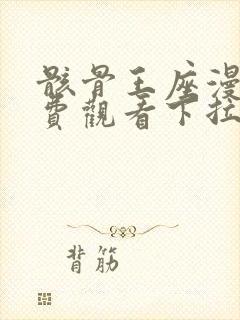 骸骨王座漫
費觀看下拉
背筋